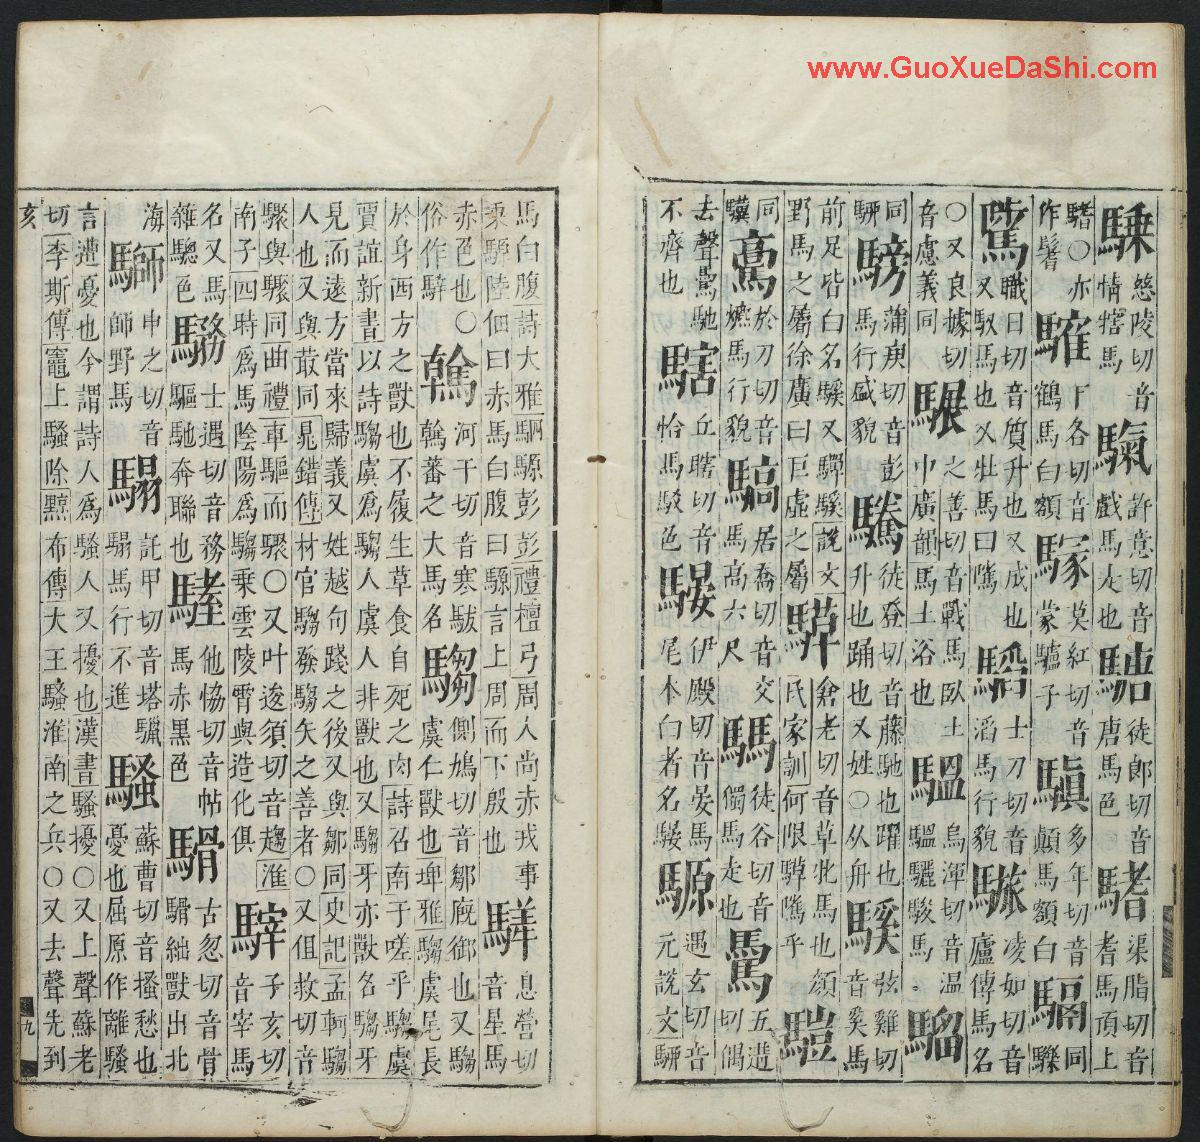 騬慈陵切音情犗馬 許意切音戲馬走也 徒郎切音唐馬色 渠脂切音耆馬項上
鰭○亦作鬐 䮤下各切音鶴馬白額 莫紅切音蒙驢子 多年切音顛馬額白 同
騭職日切音質升也又成也又馭馬也又牡馬曰隲 士刀切音滔馬行貌 凌如切音廬傳馬名
○又良據切音慮義同 之善切音戰馬臥土中廣韻馬土浴也 烏渾切音温驪駿馬 騮
同 騯蒲庚切音彭馬行盛貌 騰徒登切音藤馳也躍也升也踊也又姓○从舟 騱弦雞切音奚馬
前足皆白名騱又驒騱說文野馬之屬徐廣曰巨虛之屬 騲倉老切音草牝馬也顏氏家訓何限騲嘶乎
同 於刀切音爊馬行貌 居喬切音交馬高六尺 徒谷切音獨馬走也 五遘切偶
去聲馳不齊也 丘瞎切音恰馬駁色 騴伊殿切音晏馬尾本白者名騴 騵遇玄切音元說文
馬白腹詩大雅駟騵彭彭禮檀弓周人尚赤戎事乘騵陸佃曰赤馬白腹曰騵言上周而下殷也 騂息營切音星馬
赤色也○俗作騂 河干切音寒蕃之大馬名 騶側鳩切音鄒廐御也又騶虞仁獸也埤雅騶虞尾長
於身西方之獸也不履生草食自死之肉詩召南于嗟乎騶虞賈誼新書以詩騶虞為騶人虞人非獸也又騶牙亦獸名騶牙
見而遠方當來歸義又姓越句踐之後又與鄒同史記孟軻騶人也又與菆同鼂錯傳材官騶發騶矢之善者○又伹救切音
驟與驟同曲禮車驅而騶○又叶逡須切音趨淮南子四時為馬陰陽為騶乘雲陵霄與造化俱 子亥切音宰馬
名又馬雜驄色 士遇切音務驅馳奔聯也 他恊切音帖馬赤黑色 古忽切音骨絀獸出北
海 申之切音師野馬 託甲切音塔馬行不進 騷蘇曹切音搔愁也憂也屈原作離騷
言遭憂也今謂詩人為騷人又擾也漢書騷擾○又上聲蘇老切李斯傳竈上騷除黥布傳大王騷淮南之兵○又去聲先到
亥
九
www.GuoXueDaShi.com